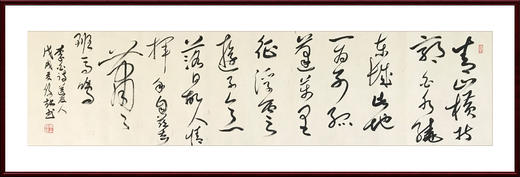 青山横北
郭白水绕
东城此地
一为别孤
蓬万里
征浮云
游子意
落日故人情
挥手自兹去
萧々
班马鸣
李白诗送友人
戊戌夏书